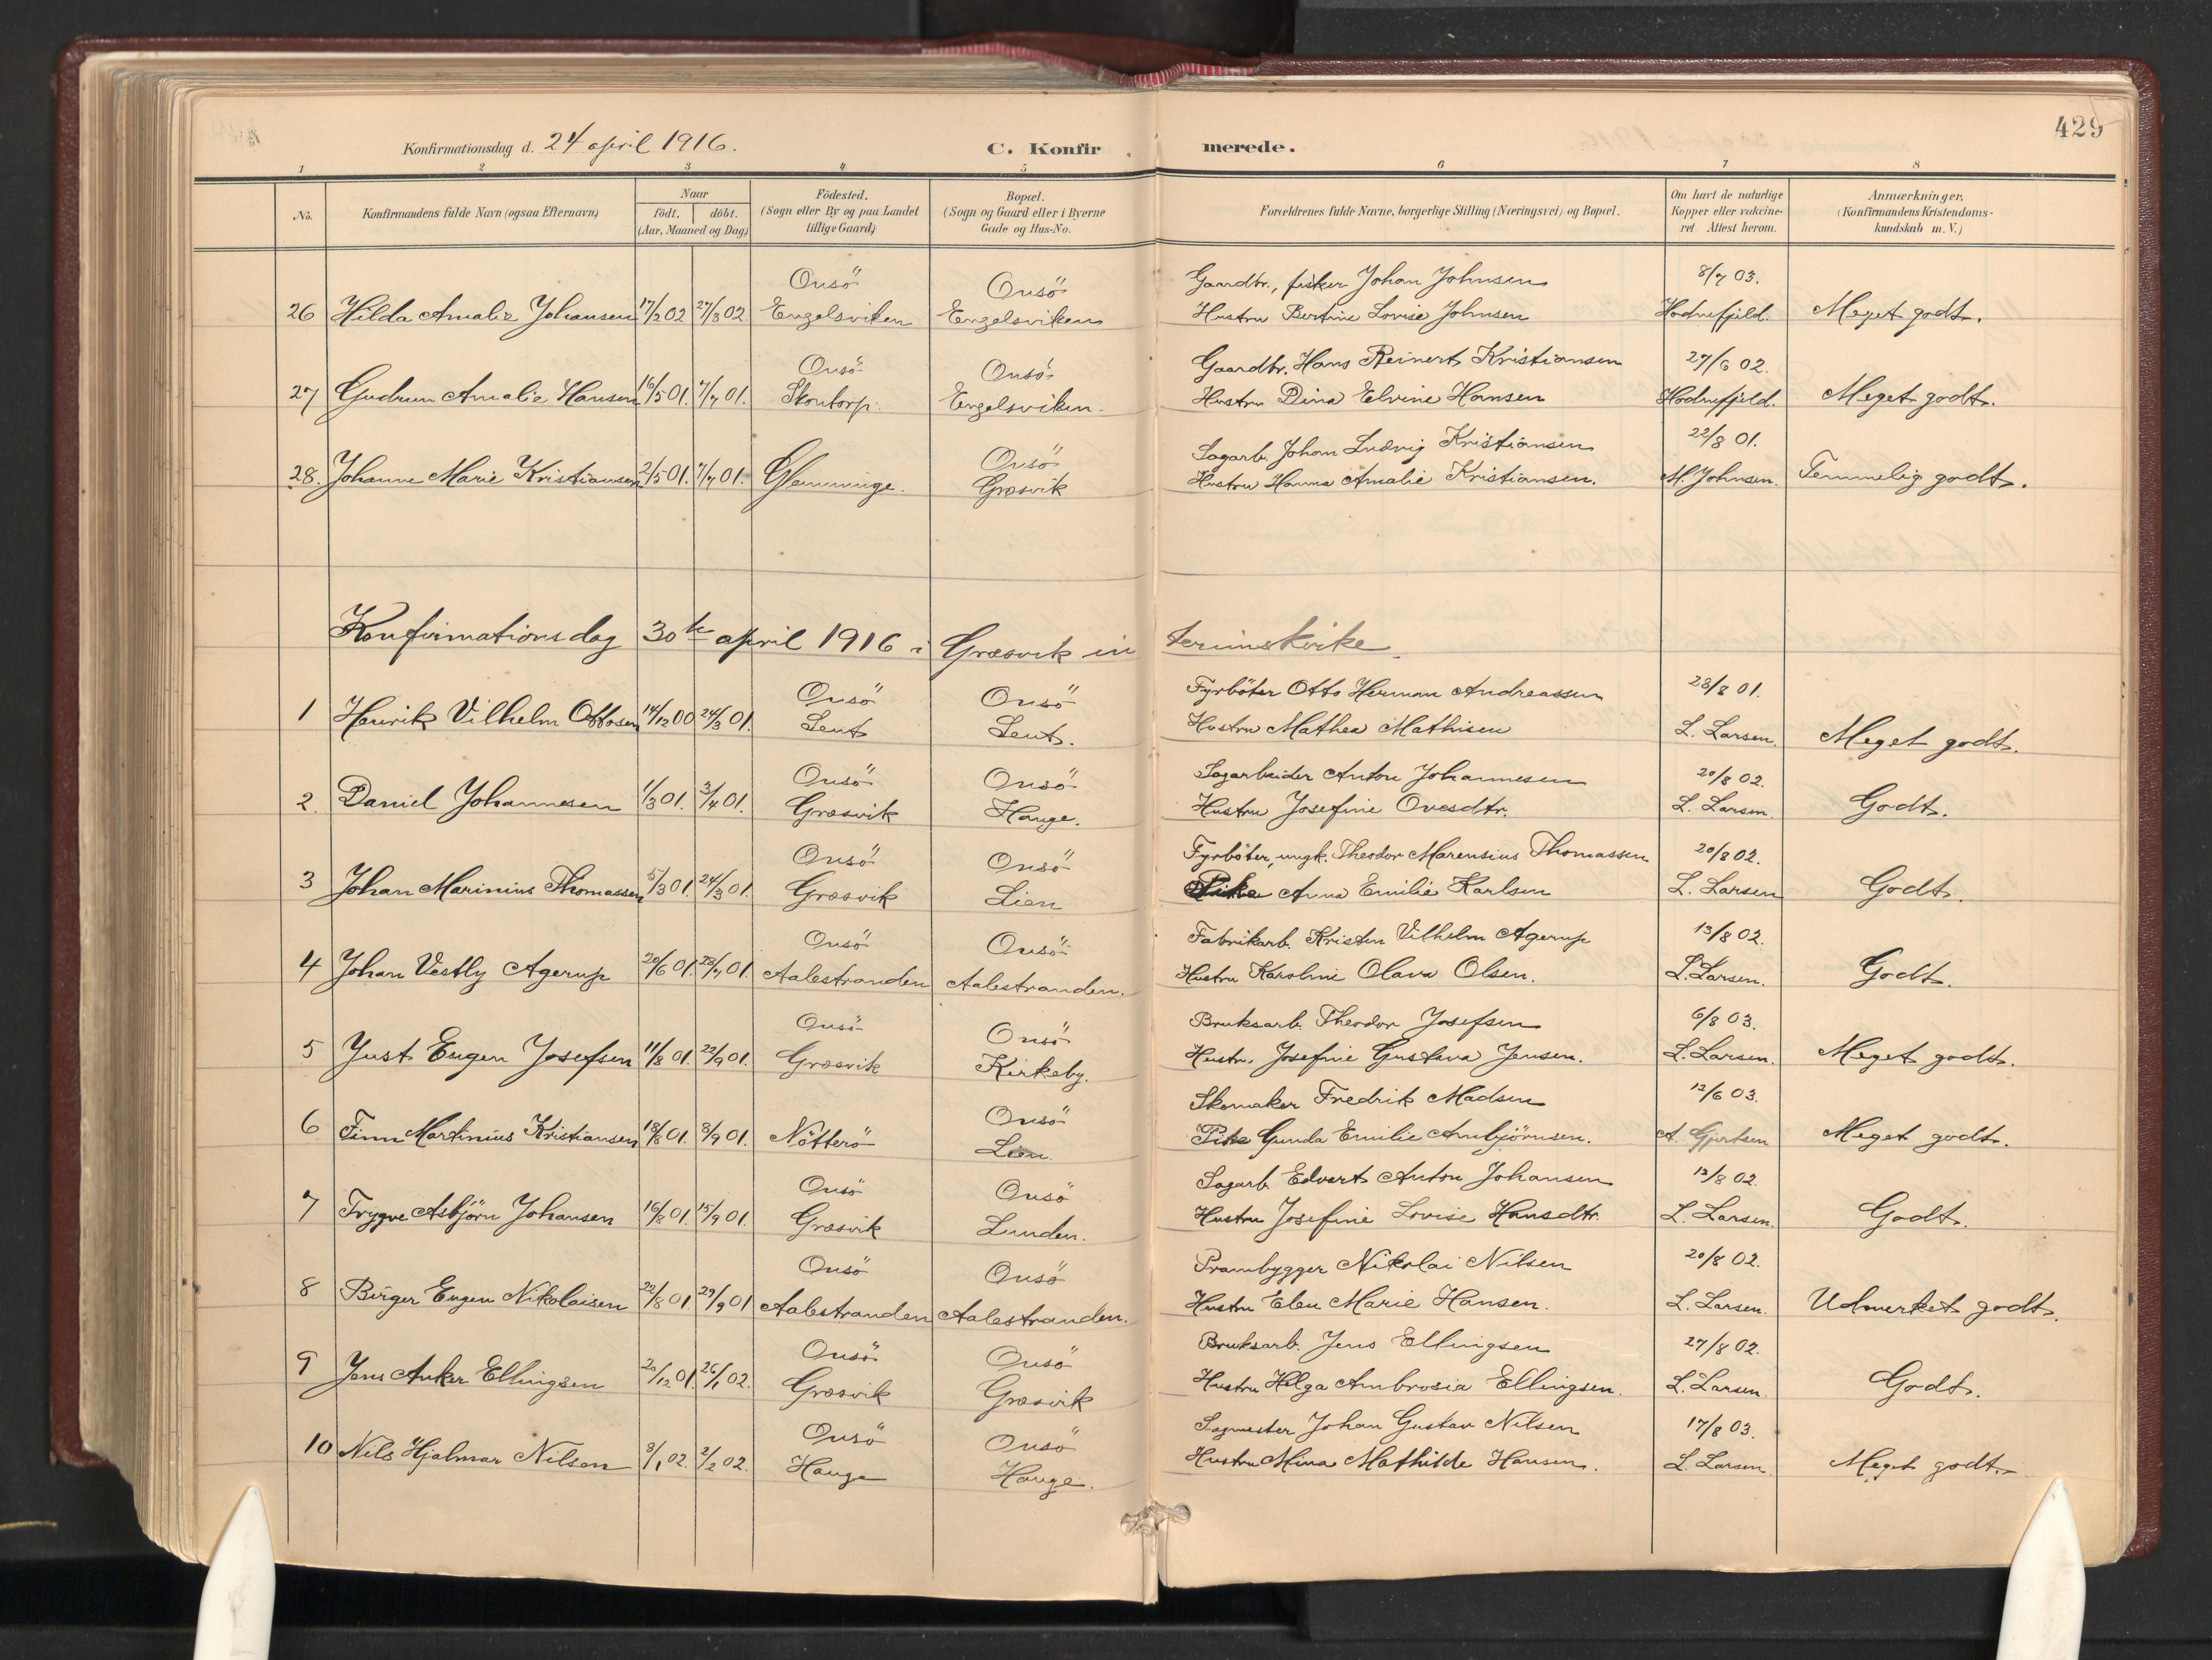 429
Konfirmationsdag d. 24 april 1916.
C. Konfirmerede.
1 2 3 4 5 6 7 8
No.
Konfirmandens fulde Navn (ogsaa Efternavn)
Naar
födt. döbt.
(Aar, Maaned og Dag)
Födested.
(Sogn eller By og paa Landet
tillige Gaard)
Bopæl.
(Sogn og Gaard eller i Byerne
Gade og Hus-No.
Forældrenes fulde Navne, borgerlige Stilling (Næringsvei) og Bopæl.
Om havt de naturlige
Kopper eller vakcine-
ret Attest herom.
Anmærkninger,
(Konfirmandens Kristendoms-
kundskab m. V.)
Onsö Onsö Gaardbr., fisker Johan Johnsen 8/7 03.
26 Hilda Amalie Johansen 17/2 02 27/3 02 Engelsviken Engelsviken Hustru Bertine Lovise Johnsen Hodnefjeld. Meget godt.
Onsö Onsö Gaardbr. Hans Reinert Kristiansen 27/6 02.
27 Gudrun Amalie Hansen 16/5 01. 7/7 01. Skontorp. Engelsviken. Hustru Dina Elvine Hansen Hodnefjeld. Meget godt.
Onsö Sagarb. Johan Ludvig Kristiansen 22/8 01.
28. Johanne Marie Kristiansen 2/5 01. 7/7 01. Glemminge. Græsvik Hustru Hanna Amalie Kristiansen. M. Johnsen. Temmelig godt.
Konfirmationsdag 30te april 1916 i Græsvik interimskirke.
Onsö Onsö Fyrböter Otto Herman Andreassen 28/8 01.
1 Henrik Vilhelm Ottosen 14/12 00 24/3 01. Leut Leut. Hustru Mathea Mathisen L. Larsen. Meget godt.
Onsö Onsö Sagarbeider Anton Johannesen 20/8 02.
2. Daniel Johannesen 1/3 01. 3/4 01. Græsvik Hauge. Hustru Josefine Ovesdtr. L. Larsen. Godt.
Onsö Onsö Fyrböter, ungk. Theodor Marensius Thomassen 20/8 02.
3 Johan Marinius Thomassen 5/3 01. 24/3 01. Græsvik Lien Pike Anna Emilie Karlsen L. Larsen Godt.
Onsö Onsö Fabrikarb. Kristen Vilhelm Agerup 13/8 02.
4 Johan Vestly Agerup 20/6 01. 28/7 01. Aalestranden Aalestranden. Hustru Karoline Olava Olsen. L. Larsen. Godt.
Onsö Onsö Bruksarb. Theodor Josefsen 6/8 03.
5 Just Eugen Josefsen 11/8 01. 22/9 01. Græsvik Kirkeby. Hustru. Josefine Gustava Jensen. L. Larsen. Meget godt.
Onsö Skomaker Fredrik Madsen 12/6 03.
6 Finn Martinius Kristiansen 18/8 01. 8/9 01. Nötterö Lien. Pike Gunda Emilie Arnbjörnsen. A. Gjertsen Meget godt.
Onsö Onsö Sagarb. Edvart Anton Johansen 13/8 02.
7 Trygve Asbjörn Johansen 16/8 01. 15/9 01. Græsvik Lunden. Hustru Josefine Lovise Hansdtr. L. Larsen. Godt.
Onsö Onsö Prambygger Nikolai Nilsen 20/8 02.
8 Birger Eugen Nikolaisen 22/8 01. 29/9 01 Aalestranden Aalestranden. Hustru Elen Marie Hansen. L. Larsen. Udmerket godt.
Onsö Onsö Bruksarb. Jens Ellingsen 27/8 02.
9 Jens Anker Ellingsen 20/12 01. 26/1 02. Græsvik Græsvik Hustru Helga Ambrosia Ellingsen. L. Larsen. Godt.
Onsö Onsö Sagmester Johan Gustav Nilsen 17/8 03.
10 Nils Hjalmar Nilsen 8/1 02. 2/2 02. Hauge Hauge. Hustru Mina Mathilde Hansen. L. Larsen. Meget godt.